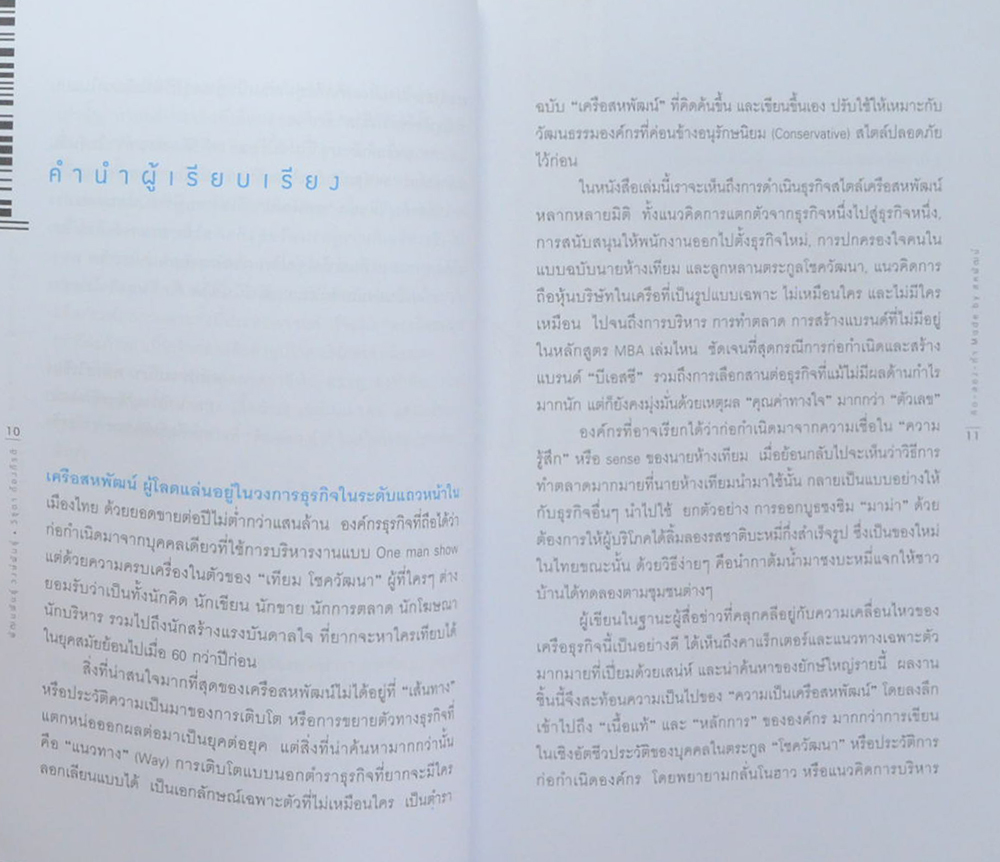 คำนำผู้เรียบเรียง
เครือสหพัฒน์ ผู้โลดแล่นอยู่ในวงการธุรกิจในระดับแถวหน้าใน
เมืองไทย ด้วยยอดขายต่อปีไม่ต่ำกว่าแสนล้าน องค์กรธุรกิจที่ถือได้ว่า
ก่อกำเนิดมาจากบุคคลเดียวที่ใช้การบริหารงานแบบ One man show
แต่ด้วยความครบเครื่องในตัวของ "เทียม โชควัฒนา" ผู้ที่ใครๆ ต่าง
ยอมรับว่าเป็นทั้งนักคิด นักเขียน นักขาย นักการตลาด นักโฆษณา
นักบริหาร รวมไปถึงนักสร้างแรงบันดาลใจ ที่ยากจะหาใครเทียบได้
ในยุคสมัยย้อนไปเมื่อ 60 กว่าปีก่อน
สิ่งที่น่าสนใจมากที่สุดของเครือสหพัฒน์ไม่ได้อยู่ที่ "เส้นทาง"
หรือประวัติความเป็นมาของการเติบโต หรือการขยายตัวทางธุรกิจที่
แตกหน่อออกผลต่อมาเป็นยุคต่อยุค แต่สิ่งที่น่าค้นหามากกว่านั้น
คือ "แนวทาง" (Way) การเติบโตแบบนอกตำราธุรกิจที่ยากจะมีใคร
ลอกเลียนแบบได้ เป็นเอกลักษณ์เฉพาะตัวที่ไม่เหมือนใคร เป็นตำรา
10
ฉบับ "เครือสหพัฒน์" ที่คิดค้นขึ้น และเขียนขึ้นเอง ปรับใช้ให้เหมาะกับ
วัฒนธรรมองค์กรที่ค่อนข้างอนุรักษนิยม (Conservative) สไตล์ปลอดภัย
ไว้ก่อน
ในหนังสือเล่มนี้เราจะเห็นถึงการดำเนินธุรกิจสไตล์เครือสหพัฒน์
หลากหลายมิติ ทั้งแนวคิดการแตกตัวจากธุรกิจหนึ่งไปสู่ธุรกิจหนึ่ง,
การสนับสนุนให้พนักงานออกไปตั้งธุรกิจใหม่, การปกครองใจคนใน
แบบฉบับนายห้างเทียม และลูกหลานตระกูลโชควัฒนา, แนวคิดการ
ถือหุ้นบริษัทในเครือที่เป็นรูปแบบเฉพาะ ไม่เหมือนใคร และไม่มีใคร
เหมือน ไปจนถึงการบริหาร การทำตลาด การสร้างแบรนด์ที่ไม่มีอยู่
ในหลักสูตร MBA เล่มไหน ชัดเจนที่สุดกรณีการก่อกำเนิดและสร้าง
แบรนด์ "บีเอสซี" รวมถึงการเลือกสานต่อธุรกิจที่แม้ไม่มีผลด้านกำไร
มากนัก แต่ก็ยังคงมุ่งมั่นด้วยเหตุผล "คุณค่าทางใจ" มากกว่า "ตัวเลข"
องค์กรที่อาจเรียกได้ว่าก่อกำเนิดมาจากความเชื่อใน "ความ
รู้สึก" หรือ sense ของนายห้างเทียม เมื่อย้อนกลับไปจะเห็นว่าวิธีการ
ทำตลาดมากมายที่นายห้างเทียมนำมาใช้นั้น กลายเป็นแบบอย่างให้
กับธุรกิจอื่นๆ นำไปใช้ ยกตัวอย่าง การออกบูธชงชิม "มาม่า" ด้วย
ต้องการให้ผู้บริโภคได้ลิ้มลองรสชาติบะหมี่กึ่งสำเร็จรูป ซึ่งเป็นของใหม่
ในไทยขณะนั้น ด้วยวิธีง่ายๆ คือนำกาต้มน้ำมาชงบะหมี่แจกให้ชาว
บ้านได้ทดลองตามชุมชนต่างๆ
ผู้เขียนในฐานะผู้สื่อข่าวที่คลุกคลีอยู่กับความเคลื่อนไหวของ
เครือธุรกิจนี้เป็นอย่างดี ได้เห็นถึงคาแร็กเตอร์และแนวทางเฉพาะตัว
มากมายที่เปี่ยมด้วยเสน่ห์ และน่าค้นหาของยักษ์ใหญ่รายนี้ ผลงาน
ชิ้นนี้จึงสะท้อนความเป็นไปของ "ความเป็นเครือสหพัฒน์" โดยลงลึก
เข้าไปถึง "เนื้อแท้" และ "หลักการ" ขององค์กร มากกว่าการเขียน
ในเชิงอัตชีวประวัติของบุคคลในตระกูล "โชควัฒนา" หรือประวัติการ
ก่อกำเนิดองค์กร โดยพยายามกลั่นโนฮาว หรือแนวคิดการบริหาร
11